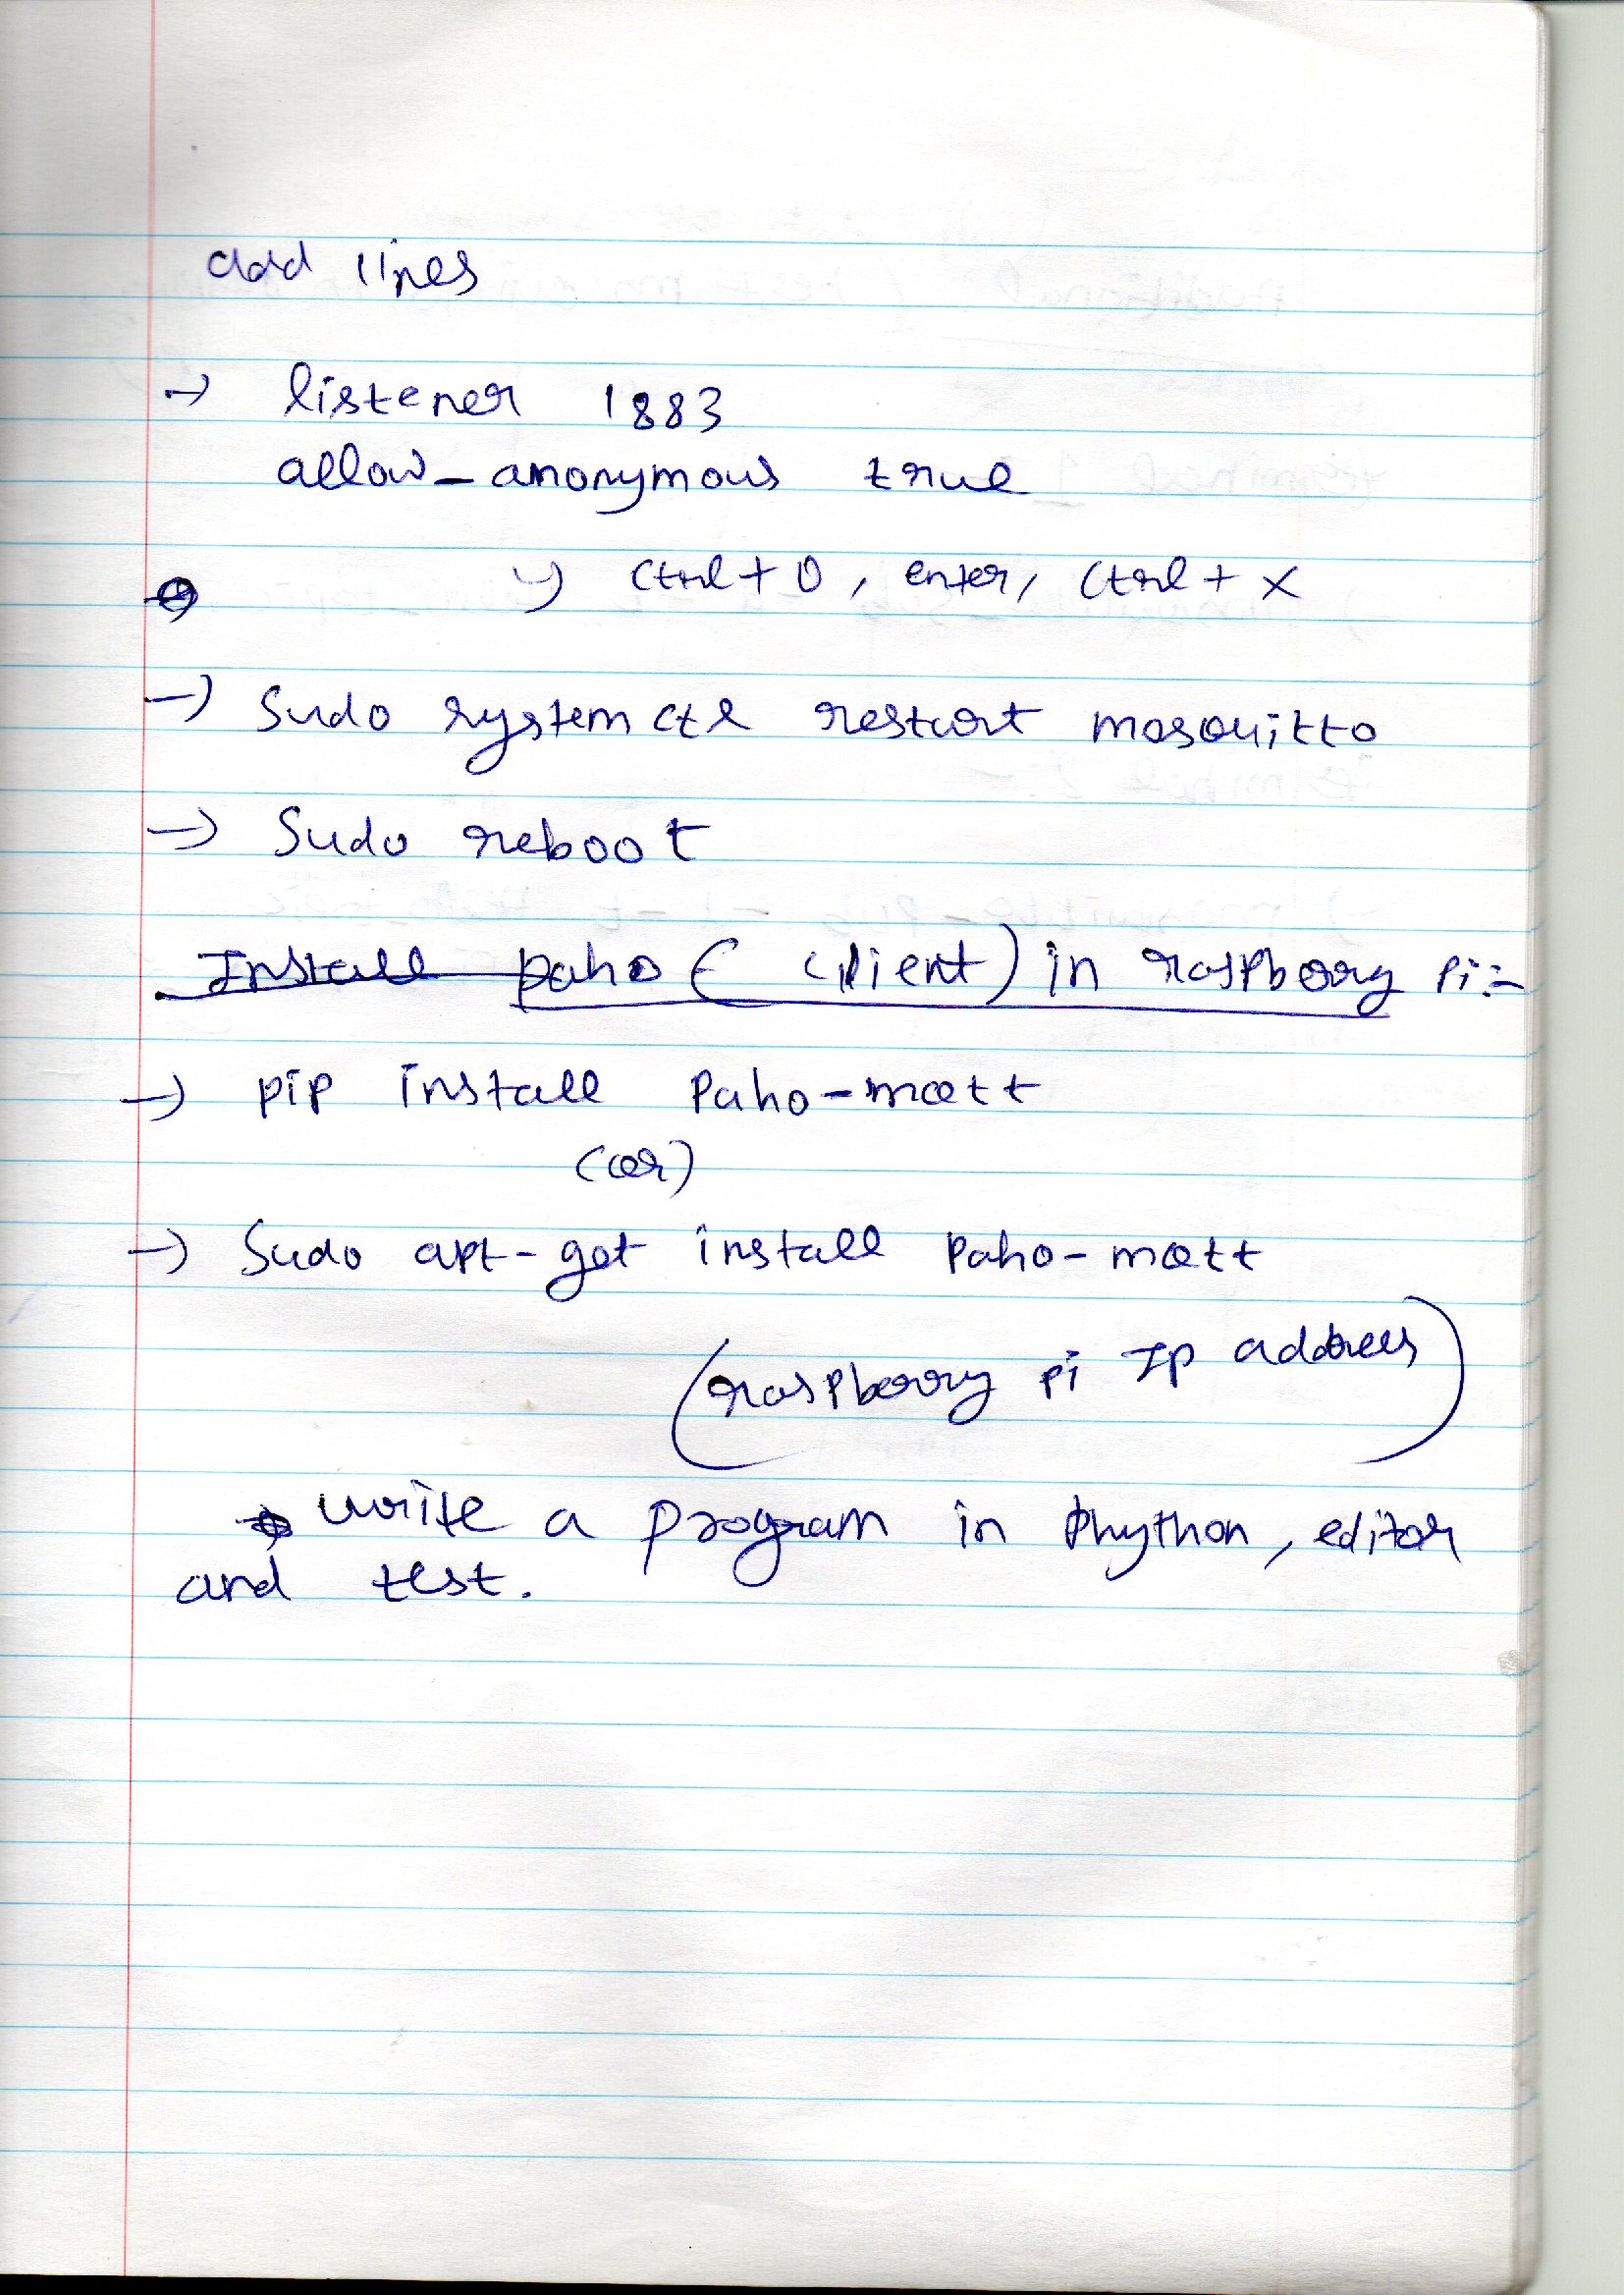 add lines
→ listener 1883
allow_anonymous true
↳ Ctrl + O, enter, Ctrl + X
→ Sudo systemctl restart mosquitto
→ Sudo reboot
Install paho (client) in raspberry Pi:-
→ pip install Paho-mqtt
(or)
→ Sudo apt-get install Paho-mqtt
(raspberry pi Ip address)
→ write a program in Phython, editor
and test.